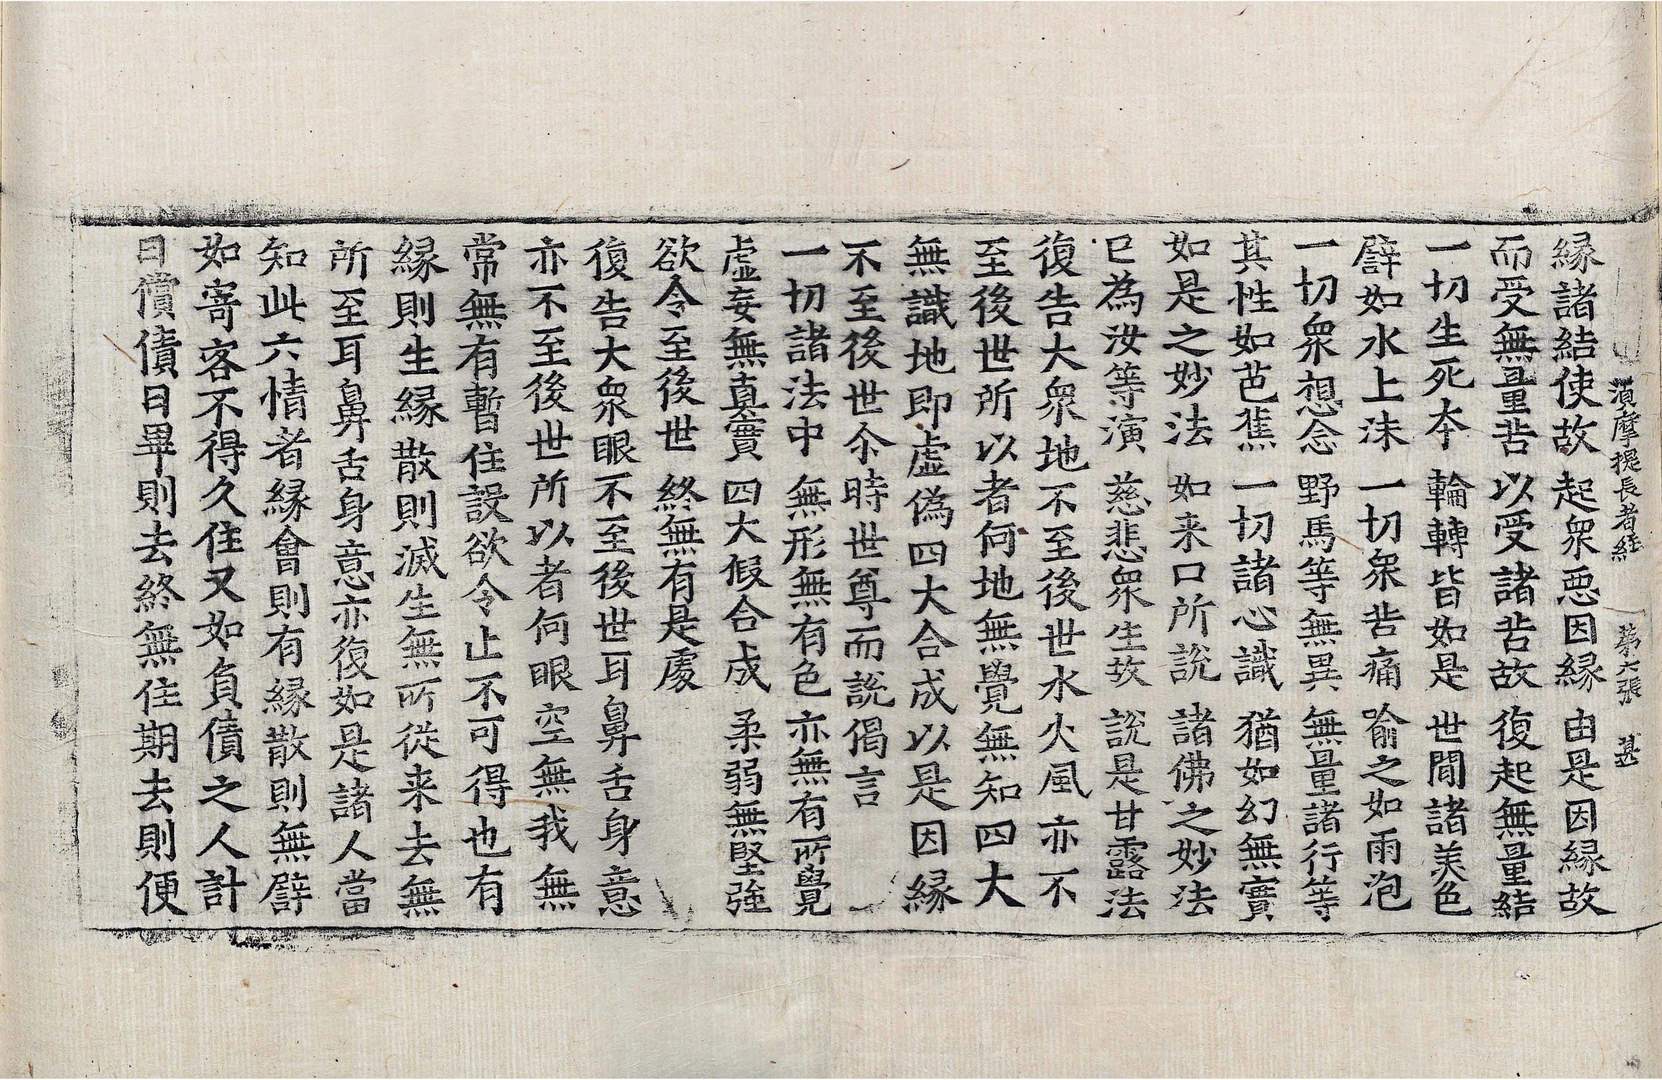 湏摩提長者経 第六張 甚
縁諸結使故 起衆惡因縁 由是因縁故
而受無量苦 以受諸苦故 復起無量結
一切生死夲 輪轉皆如是 世間諸美色
譬如水上沫 一切衆苦痛 喻之如雨泡
一切衆想念 野馬等無異 無量諸行等
其性如芭蕉 一切諸心識 猶如幻無實
如是之妙法 如来口所說 諸佛之妙法
已為汝等演 慈悲衆生故 說是甘露法
復告大衆地不至後世水火風亦不
至後世所以者何地無覺無知四大
無識地即虚偽四大合成以是因縁
不至後世尒時世尊而說偈言
一切諸法中 無形無有色 亦無有所覺
虛妄無真實 四大假合成 柔弱無堅強
欲令至後世 終無有是處
復告大衆眼不至後世耳鼻舌身意
亦不至後世所以者何眼空無我無
常無有暫住設欲令止不可得也有
縁則生縁散則滅生無所從来去無
所至耳鼻舌身意亦復如是諸人當
知此六情者縁會則有縁散則無譬
如寄客不得久住又如負債之人計
日償債日畢則去終無住期去則便